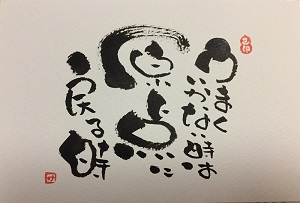 うまく
いかない時は
原点に
戻る時